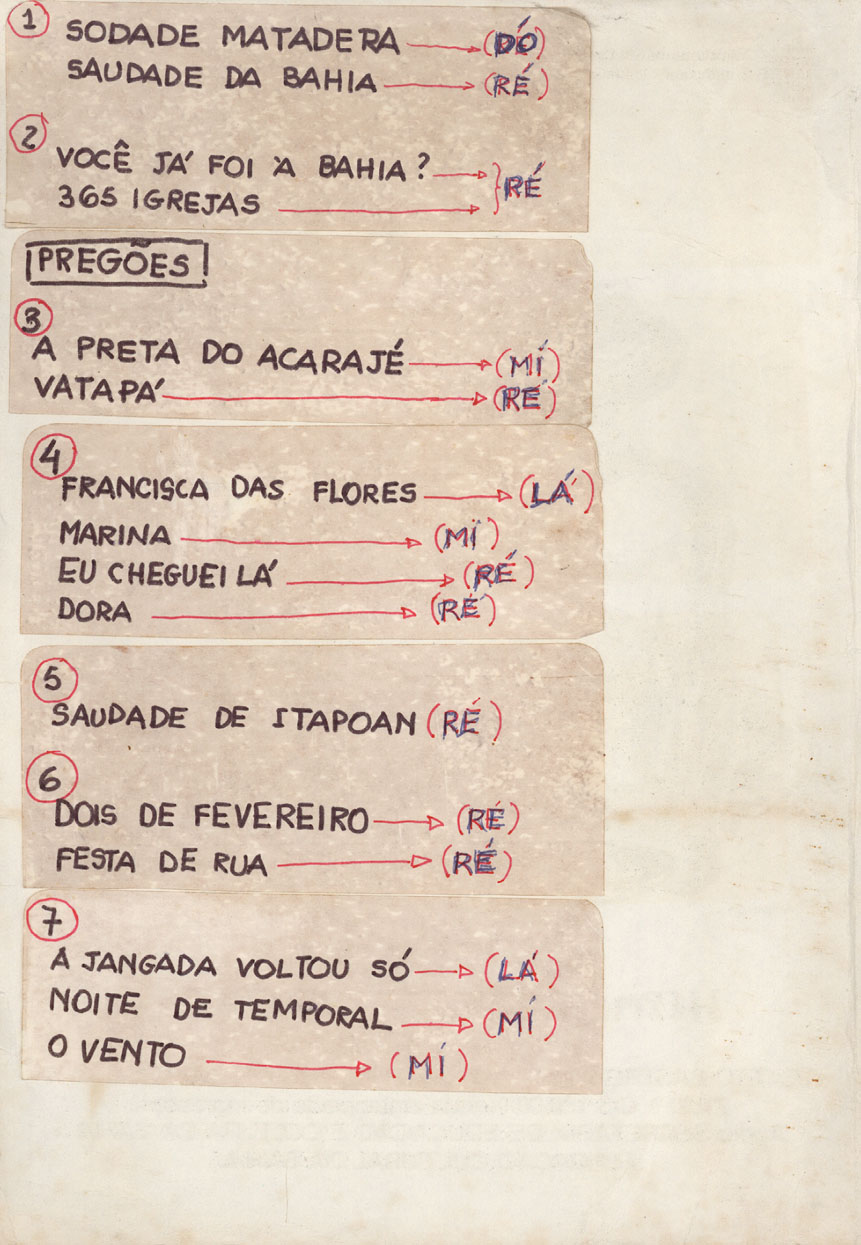 1
SODADE MATADERA (DÓ)
SAUDADE DA BAHIA (RÉ)
2
VOCÊ JÁ FOI À BAHIA?
365 IGREJAS } RÉ
PREGÕES
3
A PRETA DO ACARAJÉ (MÍ)
VATAPÁ (RÉ)
4
FRANCISCA DAS FLORES (LÁ)
MARINA (MÍ)
EU CHEGUEI LÁ (RÉ)
DORA (RÉ)
5
SAUDADE DE ITAPOAN (RÉ)
6
DOIS DE FEVEREIRO (RÉ)
FESTA DE RUA (RÉ)
7
A JANGADA VOLTOU SÓ (LÁ)
NOITE DE TEMPORAL (MÍ)
O VENTO (MÍ)